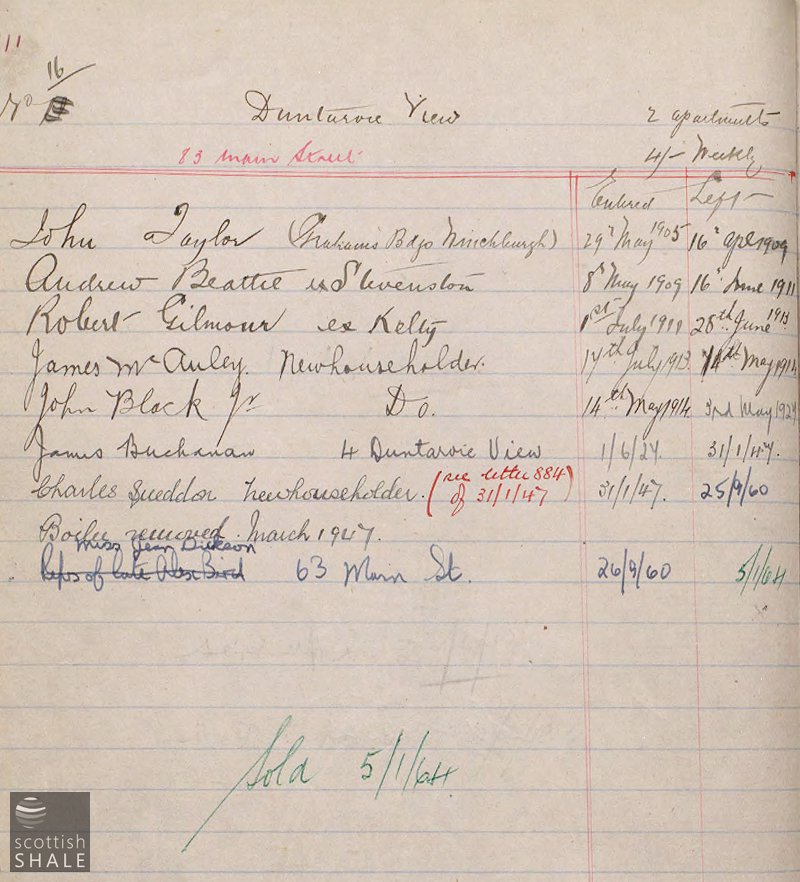 11
16
No
Duntarvie View 2 apartments
83 Main Street 4/- Weekly
Entered Left
John Taylor (Grahams Bdgs Winchburgh) 29th May 1905 16th Apl 1909
Andrew Beattie ex Stevenston 8th May 1909 16th June 1911
Robert Gilmour ex Kelty 1st July 1911 28th June 1913
James McAuley. Newhouseholder. 14th July 1913. 14th May 1914
John Black Jr Do. 14th May 1914. 3rd May 1927
James Buchanan 4 Duntarvie View 1/6/27. 31/1/47.
Charles Sneddon Newhouseholder. (see letter 884 of 31/1/47) 31/1/47. 25/9/60
Boiler removed. March 1947.
Miss Jean Dickson
Reps of late Alex Bird 63 Main St. 26/9/60 5/1/64
Sold 5/1/64.
scottish
SHALE